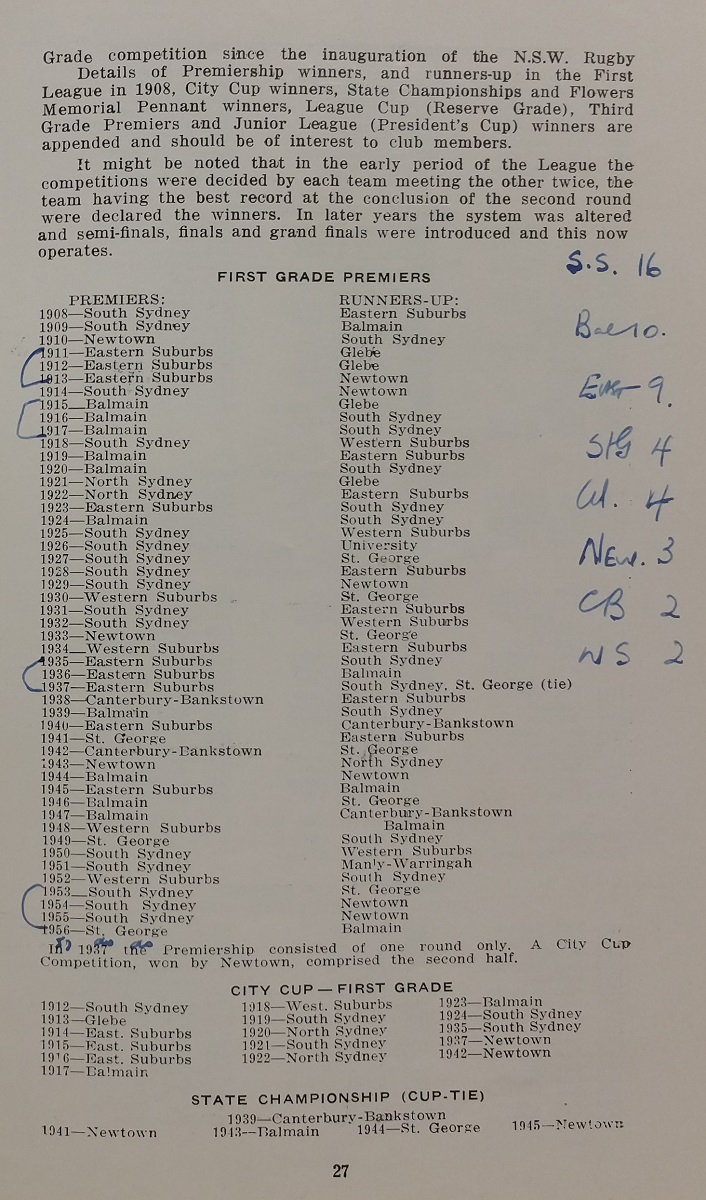 Grade competition since the inauguration of the N.S.W. Rugby
Details of Premiership winners, and runners-up in the First
League in 1908, City Cup winners, State Championships and Flowers
Memorial Pennant winners, League Cup (Reserve Grade), Third
Grade Premiers and Junior League (President's Cup) winners are
appended and should be of interest to club members.
It might be noted that in the early period of the League the
competitions were decided by each team meeting the other twice, the
team having the best record at the conclusion of the second round
were declared the winners. In later years the system was altered
and semi-finals, finals and grand finals were introduced and this now
operates.
S.S. 16
FIRST GRADE PREMIERS
PREMIERS: RUNNERS-UP:
1908—South Sydney Eastern Suburbs
1909—South Sydney Balmain
Bal 10.
1910—Newtown South Sydney
1911—Eastern Suburbs Glebe
1912—Eastern Suburbs Glebe
1913—Eastern Suburbs Newtown
1914—South Sydney Newtown
East 9.
1915—Balmain Glebe
1916—Balmain South Sydney
1917—Balmain South Sydney
1918—South Sydney Western Suburbs
StG 4
1919—Balmain Eastern Suburbs
1920—Balmain South Sydney
1921—North Sydney Glebe
1922—North Sydney Eastern Suburbs
W. 4
1923—Eastern Suburbs South Sydney
1924—Balmain South Sydney
1925—South Sydney Western Suburbs
1926—South Sydney University
New. 3
1927—South Sydney St. George
1928—South Sydney Eastern Suburbs
1929—South Sydney Newtown
1930—Western Suburbs St. George
CB 2
1931—South Sydney Eastern Suburbs
1932—South Sydney Western Suburbs
1933—Newtown St. George
1934—Western Suburbs Eastern Suburbs
NS 2
1935—Eastern Suburbs South Sydney
1936—Eastern Suburbs Balmain
1937—Eastern Suburbs South Sydney, St. George (tie)
1938—Canterbury-Bankstown Eastern Suburbs
1939—Balmain South Sydney
1940—Eastern Suburbs Canterbury-Bankstown
1941—St. George Eastern Suburbs
1942—Canterbury-Bankstown St. George
1943—Newtown North Sydney
1944—Balmain Newtown
1945—Eastern Suburbs Balmain
1946—Balmain St. George
1947—Balmain Canterbury-Bankstown
1948—Western Suburbs Balmain
1949—St. George South Sydney
1950—South Sydney Western Suburbs
1951—South Sydney Manly-Warringah
1952—Western Suburbs South Sydney
1953—South Sydney St. George
1954—South Sydney Newtown
1955—South Sydney Newtown
1956—St. George Balmain
In 1937 the Premiership consisted of one round only. A City Cup
Competition, won by Newtown, comprised the second half.
CITY CUP — FIRST GRADE
1912—South Sydney 1918—West. Suburbs 1923—Balmain
1913—Glebe 1919—South Sydney 1924—South Sydney
1914—East. Suburbs 1920—North Sydney 1935—South Sydney
1915—East. Suburbs 1921—South Sydney 1937—Newtown
1916—East. Suburbs 1922—North Sydney 1942—Newtown
1917—Balmain
STATE CHAMPIONSHIP (CUP-TIE)
1939—Canterbury-Bankstown
1941—Newtown 1943—Balmain 1944—St. George 1945—Newtown
27